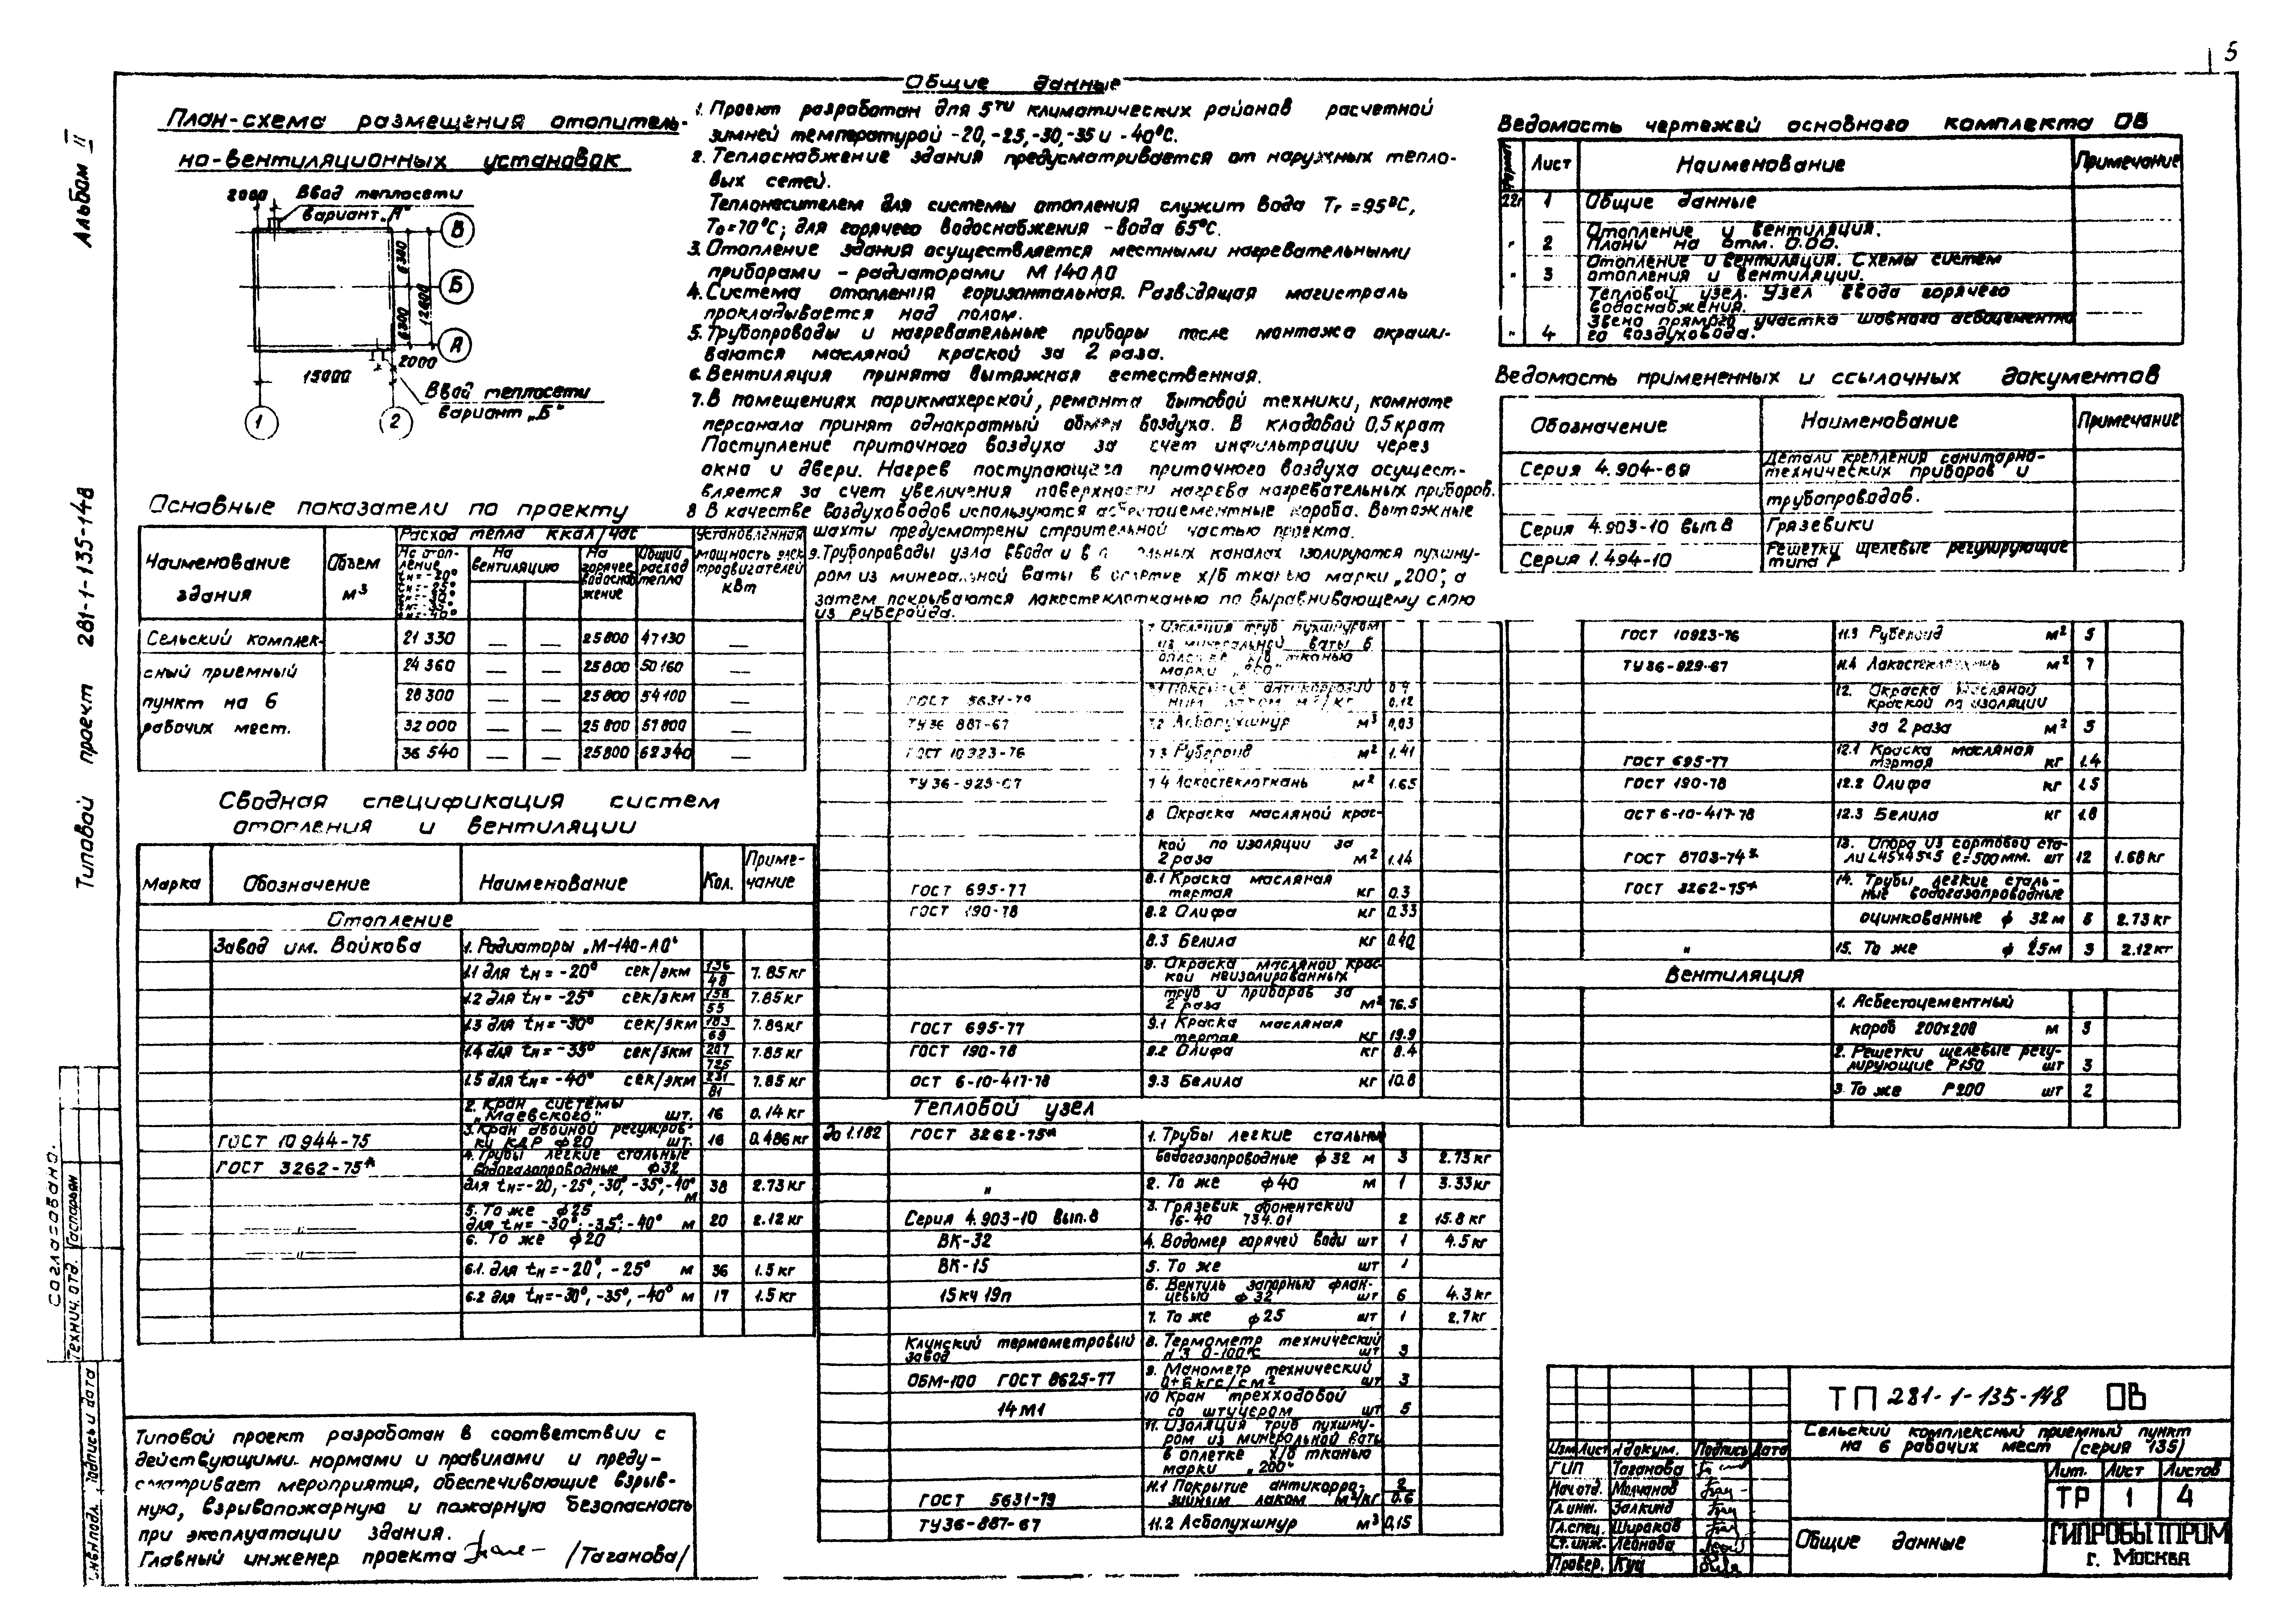 5
Альбом II
Типовой проект 281-1-135-148
План-схема размещения отопитель-
но-вентиляционных установок
2000
Ввод теплосети
вариант „А"
В
Б
А
6300
6300
12600
2000
15000
Ввод теплосети
вариант „Б"
1
2
Общие данные
1. Проект разработан для 5ти климатических районов расчетной
зимней температурой -20, -25, -30, -35 и -40°С.
2. Теплоснабжение здания предусматривается от наружных тепло-
вых сетей.
Теплоносителем для системы отопления служит вода Тг = 95°С,
То=70°С; для горячего водоснабжения - вода 65°С.
3. Отопление здания осуществляется местными нагревательными
приборами - радиаторами М 140 АО
4. Система отопления горизонтальная. Разводящая магистраль
прокладывается над полом.
5. Трубопроводы и нагревательные приборы после монтажа окраши-
ваются масляной краской за 2 раза.
6. Вентиляция принята вытяжная естественная.
7. В помещениях парикмахерской, ремонта бытовой техники, комнате
персонала принят однократный обмен воздуха. В кладовой 0,5 крат
Поступление приточного воздуха за счет инфильтрации через
окна и двери. Нагрев поступающего приточного воздуха осущест-
вляется за счет увеличения поверхности нагрева нагревательных приборов.
8 В качестве воздуховодов используются асбестоцементные короба. Вытяжные
шахты предусмотрены строительной частью проекта.
9. Трубопроводы узла ввода и в каналах изолируются пухшну-
ром из минеральной ваты в оплетке х/б тканью марки „200", а
затем покрываются лакостеклотканью по выравнивающему слою
из рубероида.
Ведомость чертежей основного комплекта ОВ
Формат Лист Наименование Примечание
22г 1 Общие данные
" 2 Отопление и вентиляция.
Планы на отм. 0.00.
" 3 Отопление и вентиляция. Схемы систем
отопления и вентиляции.
Тепловой узел. Узел ввода горячего
водоснабжения.
Звено прямого участка шовного асбоцементно
" 4 го воздуховода.
Ведомость примененных и ссылочных документов
Обозначение Наименование Примечание
Серия 4.904-69 Детали крепления санитарно-
технических приборов и
трубопроводов.
Серия 4.903-10 вып.8 Грязевики
Серия 1.494-10 Решетки щелевые регулирующие
типа Р
Основные показатели по проекту
Наименование здания
Объем м³
Расход тепла ккал/час
На отоп-
ление
tн=-20°
На вентиляцию
На горячее водоснаб-
жение
Общий расход тепла
Установленная мощность элек-
тродвигателей кВт
Сельский комплек- 21 330 — — 25800 47130 —
сный приемный 24 360 — — 25800 50160 —
пункт на 6 28 300 — — 25800 54100 —
рабочих мест. 32 000 — — 25800 57800 —
36 540 — — 25800 62340 —
Сводная спецификация систем
отопления и вентиляции
Марка Обозначение Наименование Кол. Приме-
чание
Отопление
Завод им. Войкова 1. Радиаторы „М-140-АО"
1.1 для tн = -20° сек/экм 136/48 7.85 кг
1.2 для tн = -25° сек/экм 158/55 7.85 кг
1.3 для tн = -30° сек/экм 183/69 7.85 кг
1.4 для tн = -35° сек/экм 207/725 7.85 кг
1.5 для tн = -40° сек/экм 231/81 7.85 кг
2. Кран системы
„Маевского" шт. 16 0.14 кг
3. Кран двойной регулиров-
ГОСТ 10944-75 ку КДР ф20 шт. 16 0.486 кг
4. Трубы легкие стальные
ГОСТ 3262-75* водогазопроводные ф32
для tн=-20,-25°,-30°,-35°,-40° м 38 2.73 кг
5. То же ф25
" для tн= -30°,-35°,-40° м 20 2.12 кг
" 6. То же ф20
6.1. для tн=-20°, -25° м 36 1.5 кг
6.2 для tн=-30°, -35°, -40° м 17 1.5 кг
7 Изоляция труб пухшнуром
из минеральной ваты в
оплетке х/б тканью
марки „200"
ГОСТ 5631-79 7.1 Покрытие антикоррозий
ным лаком м²/кг 0.4/0.12
ТУ36 887-67 7.2 Асбопухшнур м³ 0,03
ГОСТ 10323-76 7.3 Рубероид м² 1.41
ТУ36-929-67 7.4 Лакостеклоткань м² 1.65
8 Окраска масляной крас-
кой по изоляции за
2 раза м² 1.14
ГОСТ 695-77 8.1 Краска масляная
тертая кг 0.3
ГОСТ 190-78 8.2 Олифа кг 0.33
8.3 Белила кг 0.40
9. Окраска масляной крас-
кой неизолированных
труб и приборов за
2 раза м² 76.5
ГОСТ 695-77 9.1 Краска масляная
тертая кг 19.9
ГОСТ 190-78 9.2 Олифа кг 8.4
ОСТ 6-10-417-78 9.3 Белила кг 10.8
Тепловой узел
до 1.182 ГОСТ 3262-75* 1. Трубы легкие стальны
водогазопроводные ф 32 м 3 2.73 кг
" 2. То же ф40 м 1 3.33 кг
Серия 4.903-10 вып.8 3. Грязевик абонентский
16-40 734.01 2 15.8 кг
ВК-32 4. Водомер горячей воды шт 1 4.5 кг
ВК-15 5. То же шт 1
15 кч 19п 6. Вентиль запорный флан-
цевый ф 32 шт 6 4.3 кг
7. То же ф25 шт 1 2.7 кг
Клинский термометровый завод 8. Термометр технический
N 3 0-100°С шт 3
ОБМ-100 ГОСТ 8625-77 9. Манометр технический
0÷6 кгс/см² шт 3
14М1 10 Кран трехходовой
со штуцером шт 5
11. Изоляция труб пухшну-
ром из минеральной ваты
в оплетке х/б тканью
марки „200"
ГОСТ 5631-79 11.1 Покрытие антикорро-
зийным лаком м²/кг 2/0.6
ТУ36-887-67 11.2 Асбопухшнур м³ 0,15
ГОСТ 10923-76 11.3 Рубероид м² 5
ТУ36-929-67 11.4 Лакостеклоткань м² 7
12. Окраска масляной
краской по изоляции
за 2 раза м² 5
ГОСТ 695-77 12.1 Краска масляная
тертая кг 1.4
ГОСТ 190-78 12.2 Олифа кг 1.5
ОСТ 6-10-417-78 12.3 Белила кг 1.8
ГОСТ 8703-74* 13. Опора из сортовой ста-
ли L45×45×5 ℓ=500мм. шт 12 1.68 кг
ГОСТ 3262-75* 14. Трубы легкие сталь-
ные водогазопроводные
оцинкованные ф 32 м 8 2.73 кг
" 15. То же ф 25м 3 2.12 кг
Вентиляция
1. Асбестоцементный
короб 200×200 м 3
2. Решетки щелевые регу-
лирующие Р150 шт 3
3. То же Р200 шт 2
Типовой проект разработан в соответствии с
действующими нормами и правилами и преду-
сматривает мероприятия, обеспечивающие взрыв-
ную, взрывопожарную и пожарную безопасность
при эксплуатации здания.
Главный инженер проекта /Таганова/
Согласовано.
Технич. отд. Гаспарян
Подпись и дата
Инв.№ подл.
ТП 281-1-135-148 ОВ
Сельский комплексный приемный пункт
на 6 рабочих мест (серия 135)
Изм Лист № докум. Подпись Дата
ГИП Таганова
Нач.отд. Молчанов
Гл.инж. Залкинд
Гл.спец. Широков
Ст.инж. Леонова
Провер. Куц
Лит. Лист Листов
ТР 1 4
Общие данные
ГИПРОБЫТПРОМ
г. Москва